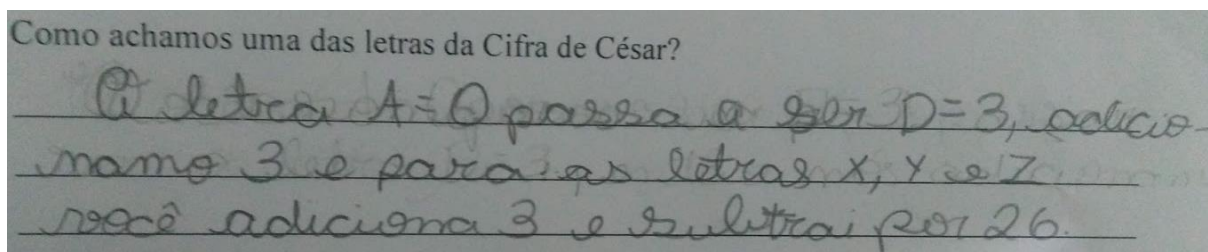 Como achamos uma das letras da Cifra de César?
A letra A=0 passa a ser D=3, adicio-
namo 3 e para as letras X, Y e Z
você adiciona 3 e subtrai por 26.